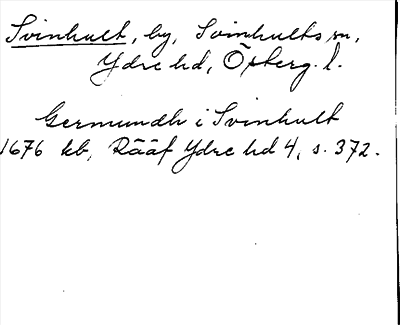 Svinhult, by, Svinhults sn,
Ydre hd, Österg. l.
Germundh i Svinhult
1676 kb, Rääf Ydre hd 4, s. 372.